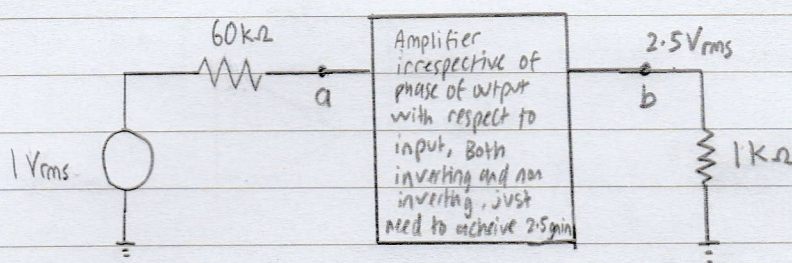 60KΩ
2.5Vrms
Amplifier
irrespective of
phase of output
with respect to
input, Both
inverting and non
inverting, just
need to acheive 2.5gain
a
b
1 Vrms
1KΩ